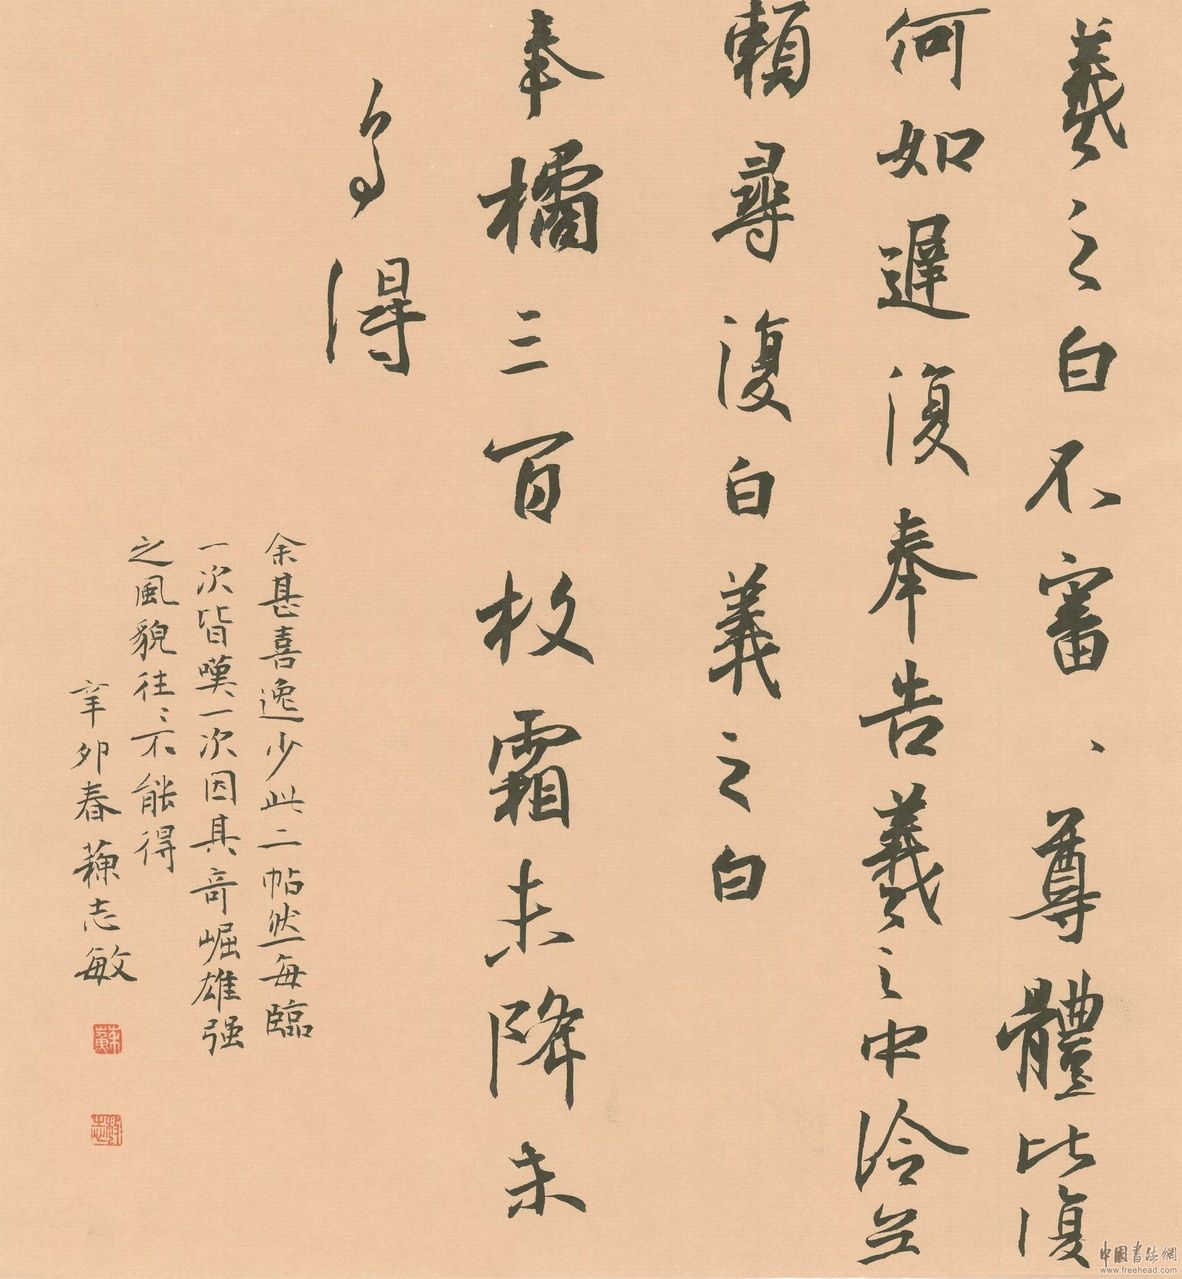 羲之白不審、尊體比復
何如遲復奉告羲之中冷無
賴尋復白羲之白
奉橘三百枚霜未降未
可多得
余甚喜逸少此二帖然每臨
一次皆嘆一次因其奇崛雄强
之風貌往〻不能得
辛卯春蘓志敏
中國書法網
www.freehead.com